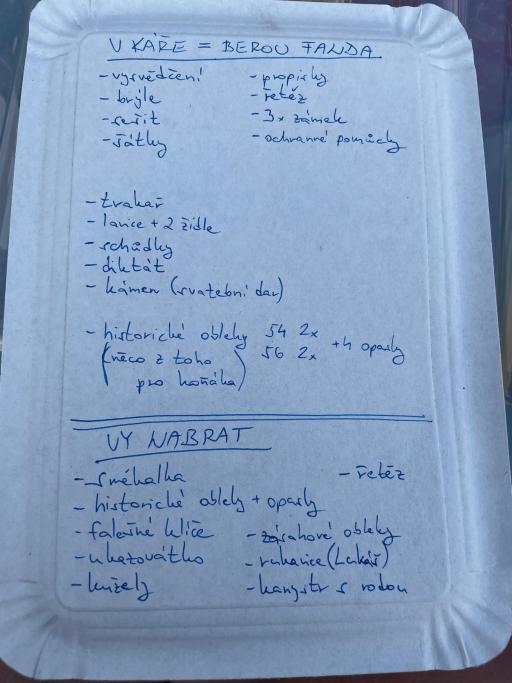 V KÁŘE = BEROU FANDA
- vysvědčení
- brýle
- sešit
- šátky
- propisky
- řetěz
- 3x zámek
- ochranné pomůcky
- trakař
- lavice + 2 židle
- schůdky
- diktát
- kámen (svatební dar)
- historické obleky 54 2x
56 2x
+4 opasky
(něco z toho
pro koňáka)
VY NABRAT
- smékalka
- řetěz
- historické obleky + opasky
- falešné klíče
- ukazovátko
- kužely
- zásahové obleky
- rukavice (Lukáš)
- kanystr s vodou